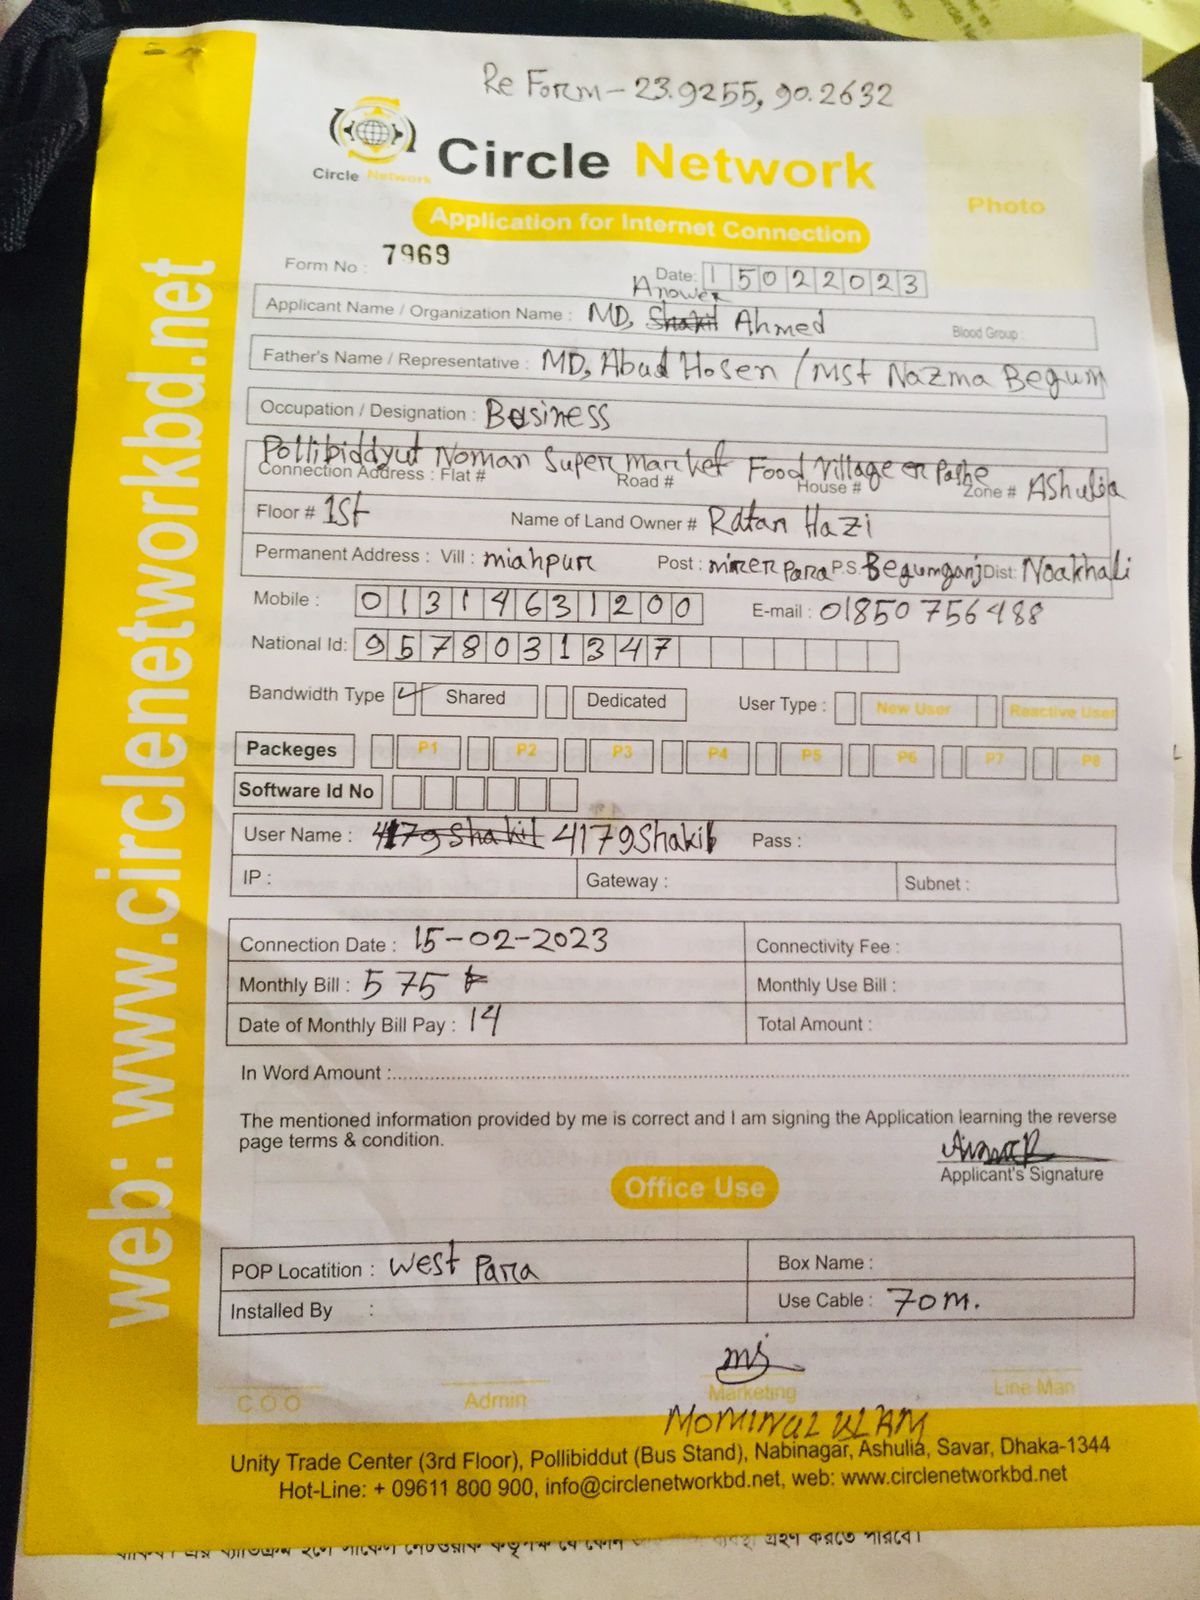 Re Form - 23.9255, 90.2632
Circle Network
Circle Network
Application for Internet Connection
Photo
Form No : 7969
Date: 15022023
Anower
Applicant Name / Organization Name : MD, Shakil Ahmed Blood Group :
Father's Name / Representative : MD, Abud Hosen / Mst Nazma Begum
Occupation / Designation : Business
Pollibiddyut Noman Super market Food Village er Pashe
Connection Address : Flat # Road # House # Zone # Ashulia
Floor # 1St Name of Land Owner # Ratan Hazi
Permanent Address : Vill : miahpur Post : mirer para P.S. Begumganj Dist: Noakhali
Mobile : 01314631200 E-mail : 01850 756488
National Id: 9578031347
Bandwidth Type Shared Dedicated User Type : New User Reactive User
Packeges P1 P2 P3 P4 P5 P6 P7 P8
Software Id No
User Name : 4179Shakil 4179Shakil Pass :
IP : Gateway : Subnet :
Connection Date : 15-02-2023 Connectivity Fee :
Monthly Bill : 575 Monthly Use Bill :
Date of Monthly Bill Pay : 14 Total Amount :
In Word Amount :
The mentioned information provided by me is correct and I am signing the Application learning the reverse
page terms & condition.
Applicant's Signature
Office Use
POP Locatition : West Para Box Name :
Installed By : Use Cable : 70m.
C.O.O Admin Marketing Line Man
MOMINUL ISLAM
Unity Trade Center (3rd Floor), Pollibiddut (Bus Stand), Nabinagar, Ashulia, Savar, Dhaka-1344
Hot-Line: + 09611 800 900, info@circlenetworkbd.net, web: www.circlenetworkbd.net
web: www.circlenetworkbd.net
গ্রহণ করতে পারবে।